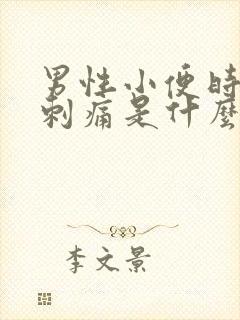 男性小便時
刺痛是什麼
李文景